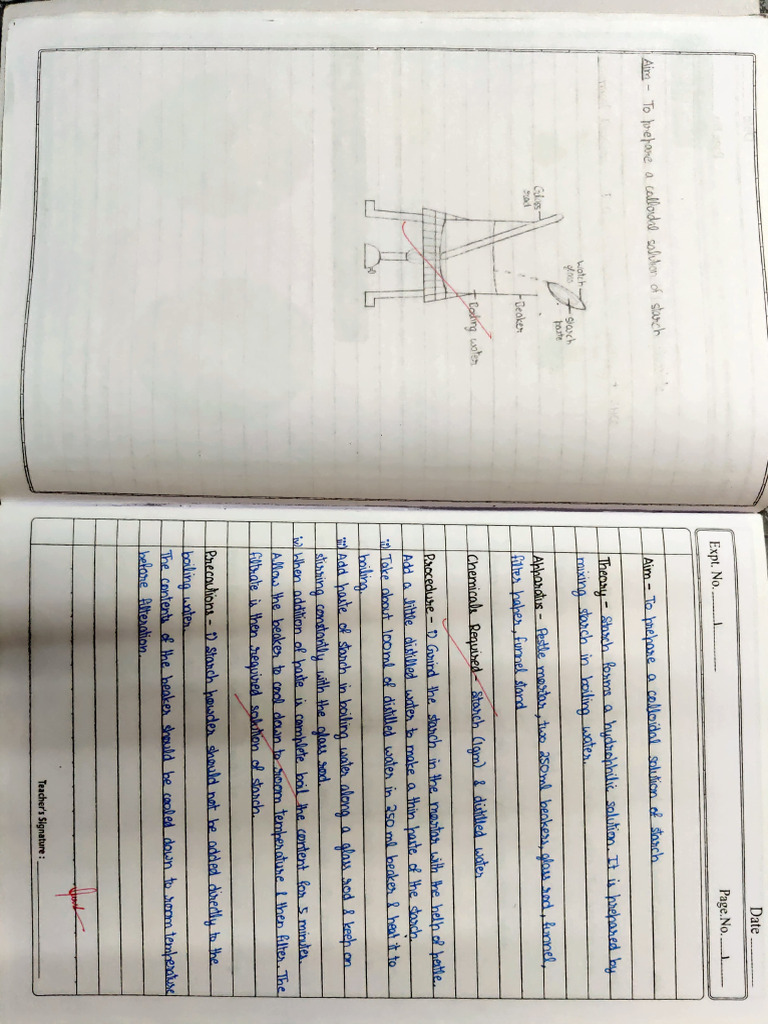 Aim - To prepare a colloidal solution of starch
watch glass
starch paste
Glass rod
Beaker
Boiling water
Date
Expt. No. 1
Page.No. 1
Aim - To prepare a colloidal solution of starch
Theory - Starch forms a hydrophilic solution. It is prepared by
mixing starch in boiling water.
Apparatus - Pestle mortar, two 250ml beakers, glass rod, funnel,
filter paper, funnel stand
Chemicals Required - Starch (1gm) & distilled water
Procedure - i) Grind the starch in the mortar with the help of pestle.
Add a little distilled water to make a thin paste of the starch.
ii) Take about 100ml of distilled water in 250 ml beaker & heat it to
boiling.
iii) Add paste of starch in boiling water along a glass rod & keep on
stirring constantly with the glass rod.
iv) When addition of paste is complete boil the content for 5 minutes.
Allow the beaker to cool down to room temperature & then filter. The
filtrate is then required solution of starch.
Precautions - i) Starch powder should not be added directly to the
boiling water.
The contents of the beaker should be cooled down to room temperature
before filteration.
Teacher's Signature :